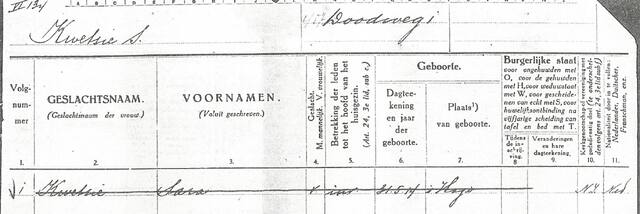 VI 134
Doodweg 1
Kwetsie S.
Volg-
nummer
GESLACHTSNAAM.
(Geslachtsnaam der vrouw.)
VOORNAMEN.
(Voluit geschreven.)
Geslacht.
M. mannelijk. V. vrouwelijk.
Betrekking der leden
tot het hoofd van het
huisgezin.
(Art. 24, 3e lid, sub c.)
Geboorte.
Dagtee-
kening
en jaar
der
geboorte.
Plaats¹)
van geboorte.
Burgerlijke staat
voor ongehuwden met
O, voor gehuwden met
H, voor weduwstaat
met W, voor gescheide-
nen van echt met S, voor
huwelijksontbinding na
vijfjarige scheiding van
tafel en bed met T.
Tijdens
de in-
schrij-
ving.
Veranderingen
en hare
dagteekening.
Nederlander, Duitscher,
Franschman, enz.
1.
2.
3.
4.
5.
6.
7.
8
9.
10.
11.
1
Kwetsie
Sara
v
31.5.14
's Hage
N.I.
Ned